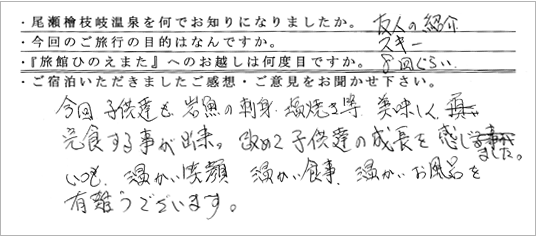 ・尾瀬檜枝岐温泉を何でお知りになりましたか。 友人の紹介
・今回のご旅行の目的はなんですか。 スキー
・『旅館ひのえまた』へのお越しは何度目ですか。 8回ぐらい
・ご宿泊いただきましたご感想・ご意見をお聞かせ下さい。
今回子供達も岩魚の刺身・塩焼き等 美味しく
完食する事が出来。改めて子供達の成長を感じました。
いつも、温かい笑顔 温かい食事、温かいお風呂を
有難うございます。